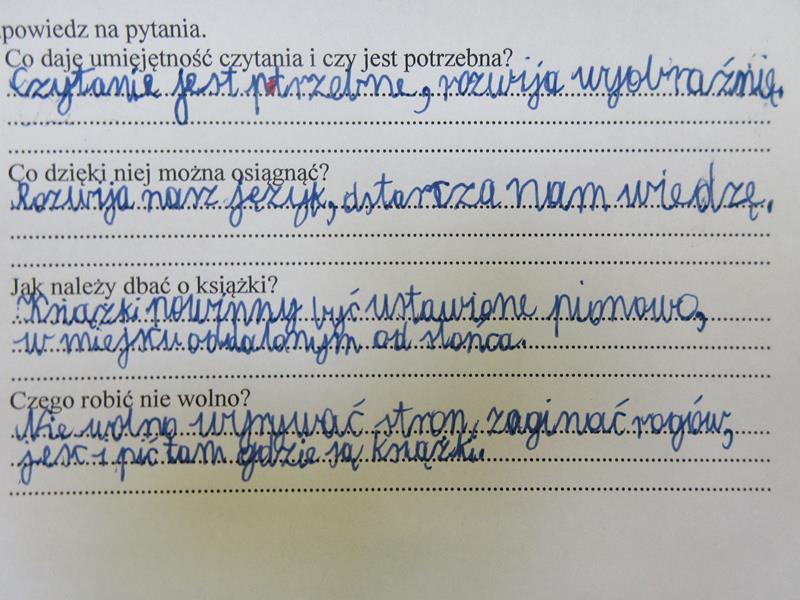 powiedz na pytania.
Co daje umiejętność czytania i czy jest potrzebna?
Czytanie jest ptrzebne, rozwija wyobraźnię.
Co dzięki niej można osiągnąć?
Rozwija nasz język, dstarcza nam wiedzę.
Jak należy dbać o książki?
Książki powinny być ustawione pionowo,
w miejscu oddalonym od słońca.
Czego robić nie wolno?
Nie wolno wyrywać stron, zaginać rogów,
jeść i pić tam gdzie są książki.